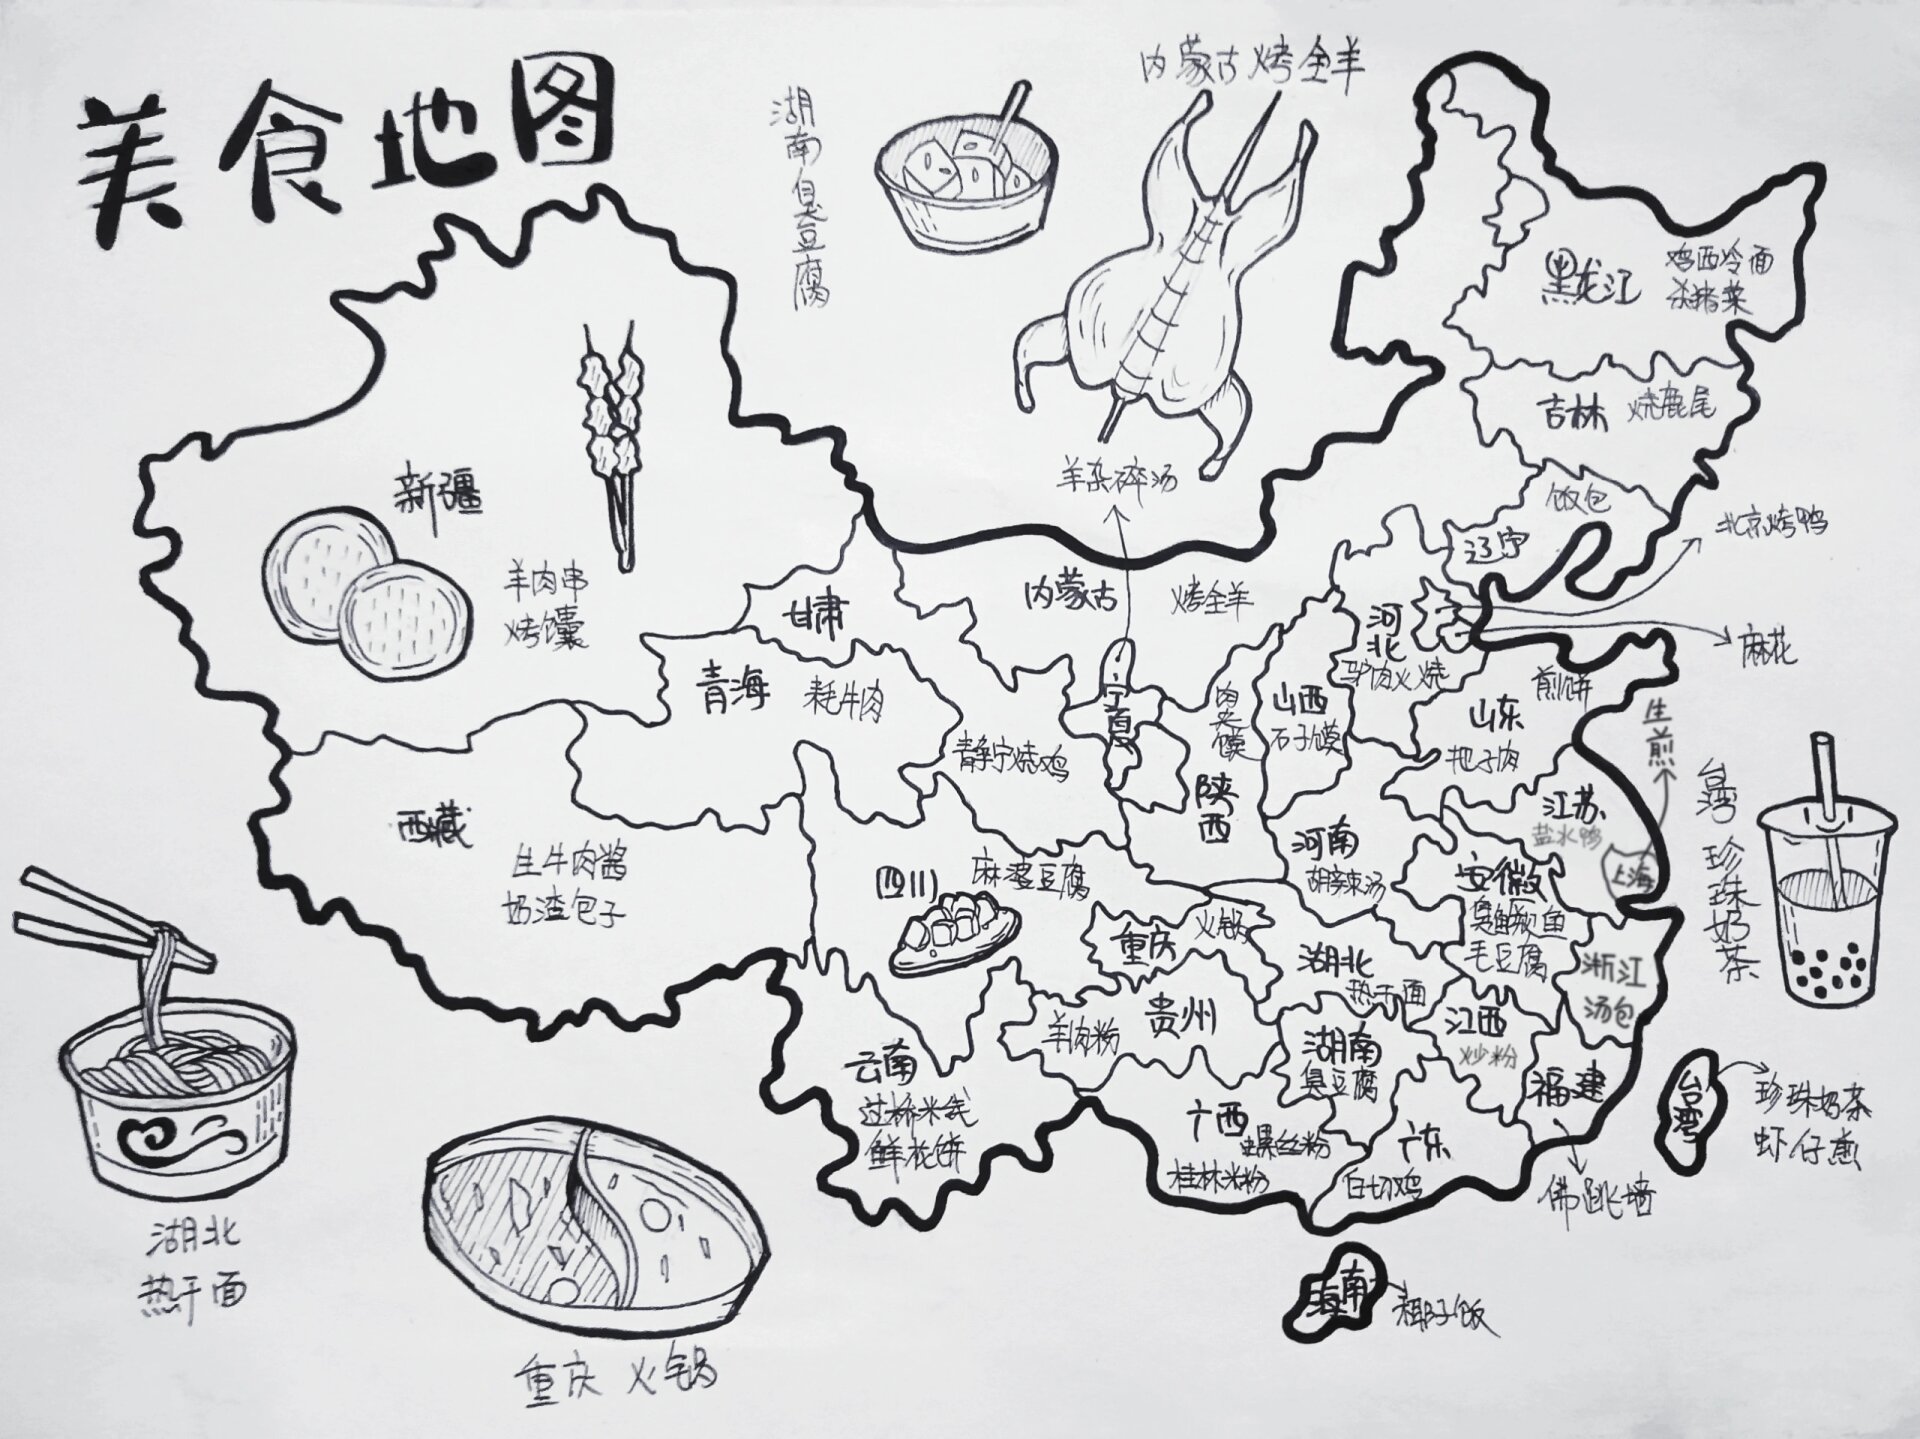 美食地图
湖南臭豆腐
内蒙古烤全羊
黑龙江
鸡西冷面
杀猪菜
吉林
烧鹿尾
饭包
辽宁
北京烤鸭
麻花
羊杂碎汤
新疆
羊肉串
烤馕
甘肃
内蒙古
烤全羊
河北
驴肉火烧
青海
耗牛肉
静宁烧鸡
宁夏
肉夹馍
陕西
山西
石子馍
山东
煎饼
把子肉
生煎
江苏
盐水鸭
上海
台湾珍珠奶茶
西藏
生牛肉酱
奶渣包子
四川
麻婆豆腐
河南
胡辣汤
安徽
臭鳜鱼
毛豆腐
重庆
火锅
湖北
热干面
浙江
汤包
贵州
羊肉粉
湖南
臭豆腐
江西
炒粉
福建
佛跳墙
云南
过桥米线
鲜花饼
广西
螺丝粉
桂林米粉
广东
白切鸡
台湾
珍珠奶茶
虾仔煎
海南
椰子饭
湖北
热干面
重庆火锅